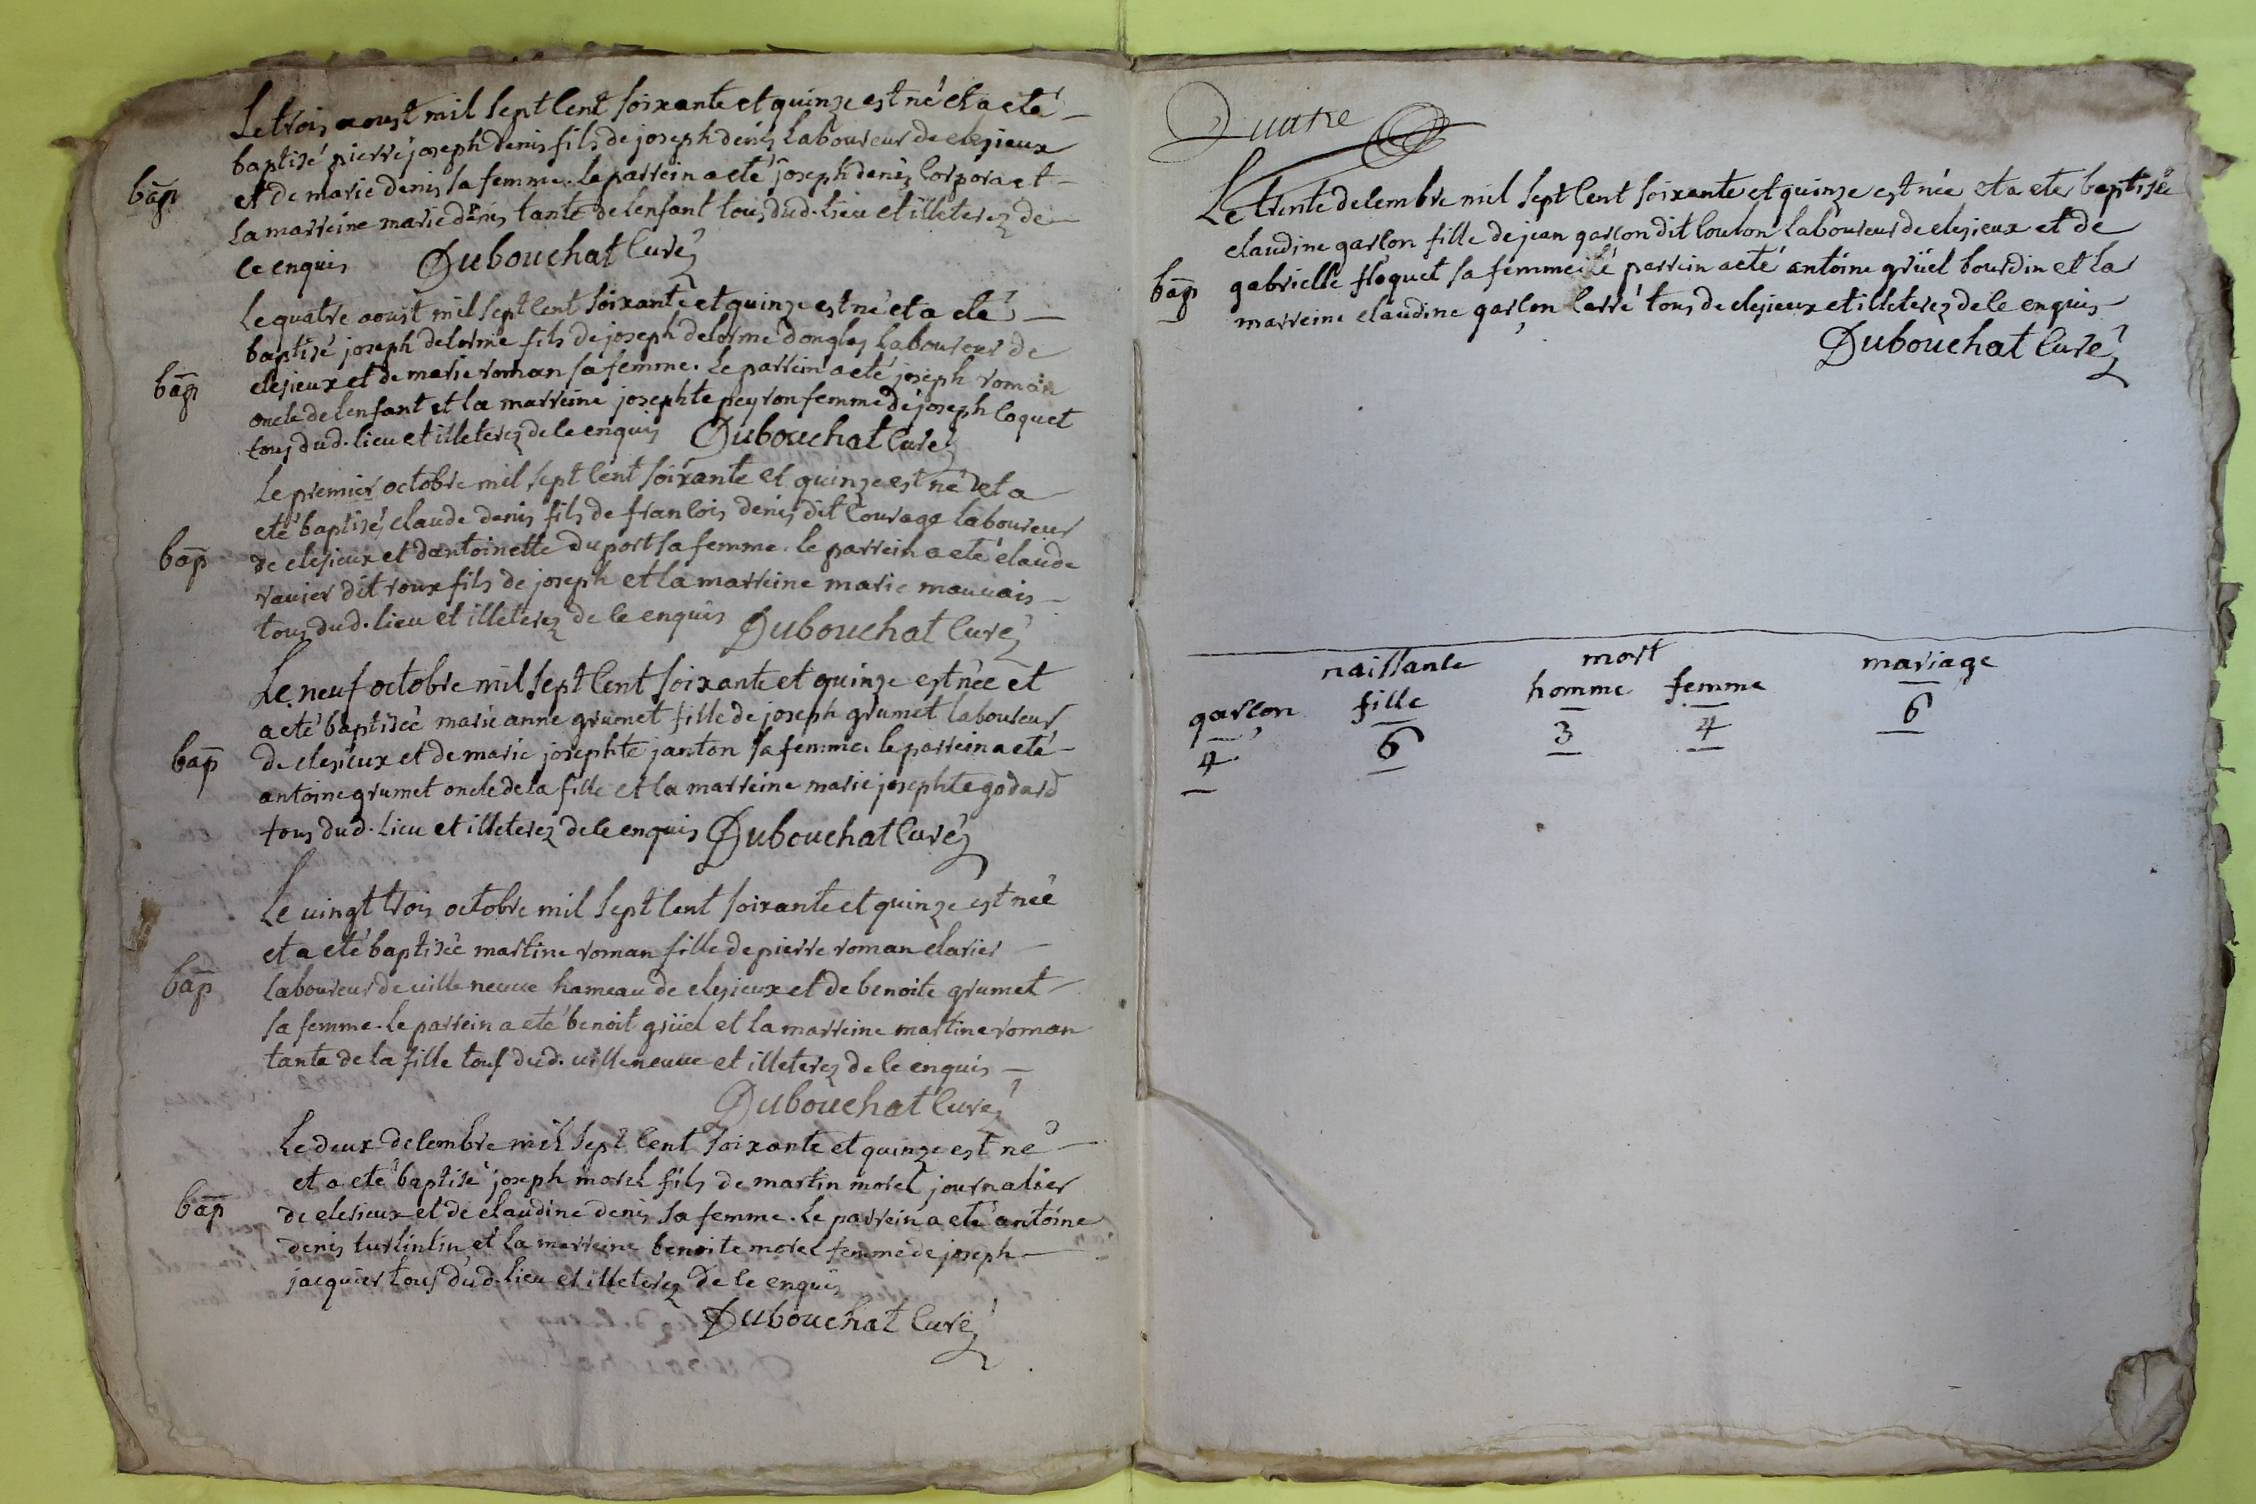 Le trois aoust mil sept cent soixante et quinze est né et a eté
baptisé pierre joseph denis fils de joseph denis laboureur de clesieux
bap et de marie denis sa femme. le parrein a eté joseph denis corpora et
la marreine marie denis tante de lenfant tous dud. lieu et illeterez de
ce enquis Dubouchat curé
Le quatre aoust mil sept cent soixante et quinze est né et a eté
baptisé joseph delorme fils de joseph delorme donglas laboureur de
bap clesieux et de marie roman sa femme. le parrein a eté joseph roman
oncle de lenfant et la marreine josephte peyron femme de joseph coquet
tous dud. lieu et illeterez de ce enquis Dubouchat curé
Le premier octobre mil sept cent soixante et quinze est né et a
eté baptisé claude denis fils de francois denis dit courage laboureur
bap de clesieux et dantoinette du port sa femme. le parrein a eté claude
ravier dit roux fils de joseph et la marreine marie mauvais
tous dud. lieu et illeterez de ce enquis Dubouchat curé
Le neuf octobre mil sept cent soixante et quinze est née et
a eté baptisée marie anne grumet fille de joseph grumet laboureur
bap de clesieux et de marie josephte janton sa femme. le parrein a eté
antoine grumet oncle de la fille et la marreine marie josephte godard
tous dud. lieu et illeterez de ce enquis Dubouchat curé
Le vingt trois octobre mil sept cent soixante et quinze est née
et a eté baptisée martine roman fille de pierre roman clarier
bap laboureur de villeneuve hameau de clesieux et de benoite grumet
sa femme. le parrein a eté benoit grüel et la marreine martine roman
tante de la fille tous dud. villeneuve et illeterez de ce enquis
Dubouchat curé
Le deux decembre mil sept cent soixante et quinze est né
et a eté baptisé joseph morel fils de martin morel journalier
bap de clesieux et de claudine denis sa femme. le parrein a eté antoine
denis turlintin et la marreine benoite morel femme de joseph
jacquier tous dud. lieu et illeterez de ce enquis
Dubouchat curé
Quatre
Le trente decembre mil sept cent soixante et quinze est née et a eté baptisée
claudine garçon fille de jean garcon dit coulon laboureur de clesieux et de
bap gabrielle floquet sa femme le parrein a eté antoine grüel bourdin et la
marreine claudine garçon carré tous de clesieux et illeterez de ce enquis
Dubouchat curé
naissance mort mariage
garçon fille homme femme
4 6 3 4 6